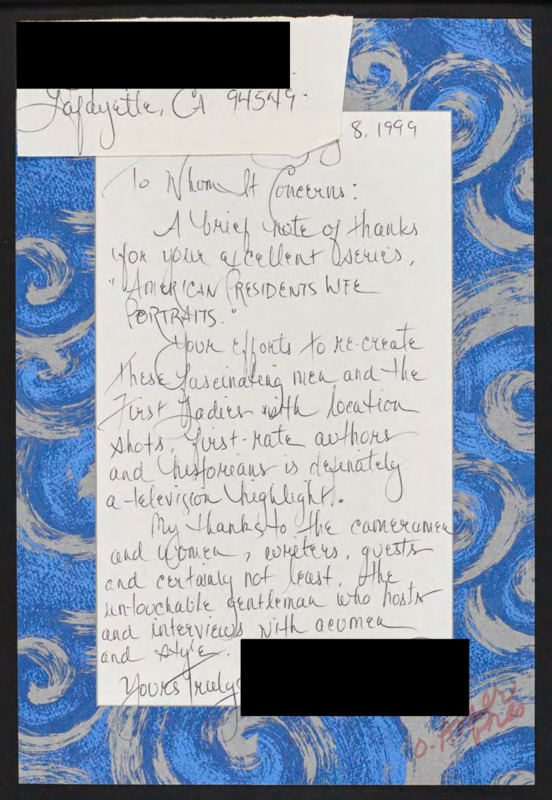 Lafayette, CA 94549.
8, 1999
To Whom It Concerns:
A brief note of thanks
for your excellent series,
"AMERICAN PRESIDENTS LIFE
PORTRAITS."
Your efforts to re-create
these fascinating men and the
First Ladies with location
shots, first-rate authors
and historians is definately
a television highlight.
My thanks to the cameramen
and women, writers, guests
and certainly not least, the
un-touchable gentleman who hosts
and interviews with acumen
and style.
Yours Truly,